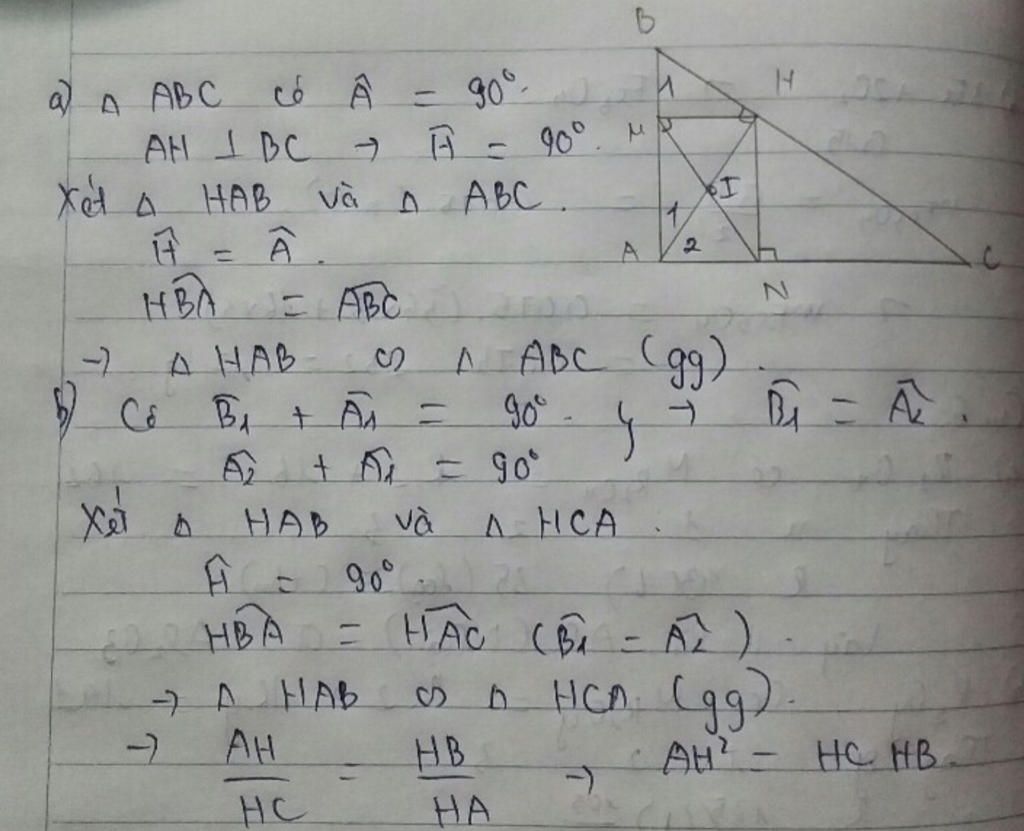 a) Δ ABC có Â = 90°.
AH ⊥ BC → Ĥ = 90°.
Xét Δ HAB và Δ ABC.
Ĥ = Â.
HBA = ABC
→ Δ HAB ∽ Δ ABC (gg).
b) Có B̂1 + Â1 = 90°. } → B̂1 = Â2.
Â2 + Â1 = 90°
Xét Δ HAB và Δ HCA.
Ĥ = 90°.
HBA = HAC (B̂1 = Â2).
→ Δ HAB ∽ Δ HCA (gg).
→ AH/HC = HB/HA → AH² = HC HB.
B
1
H
M
I
1
2
A
N
C